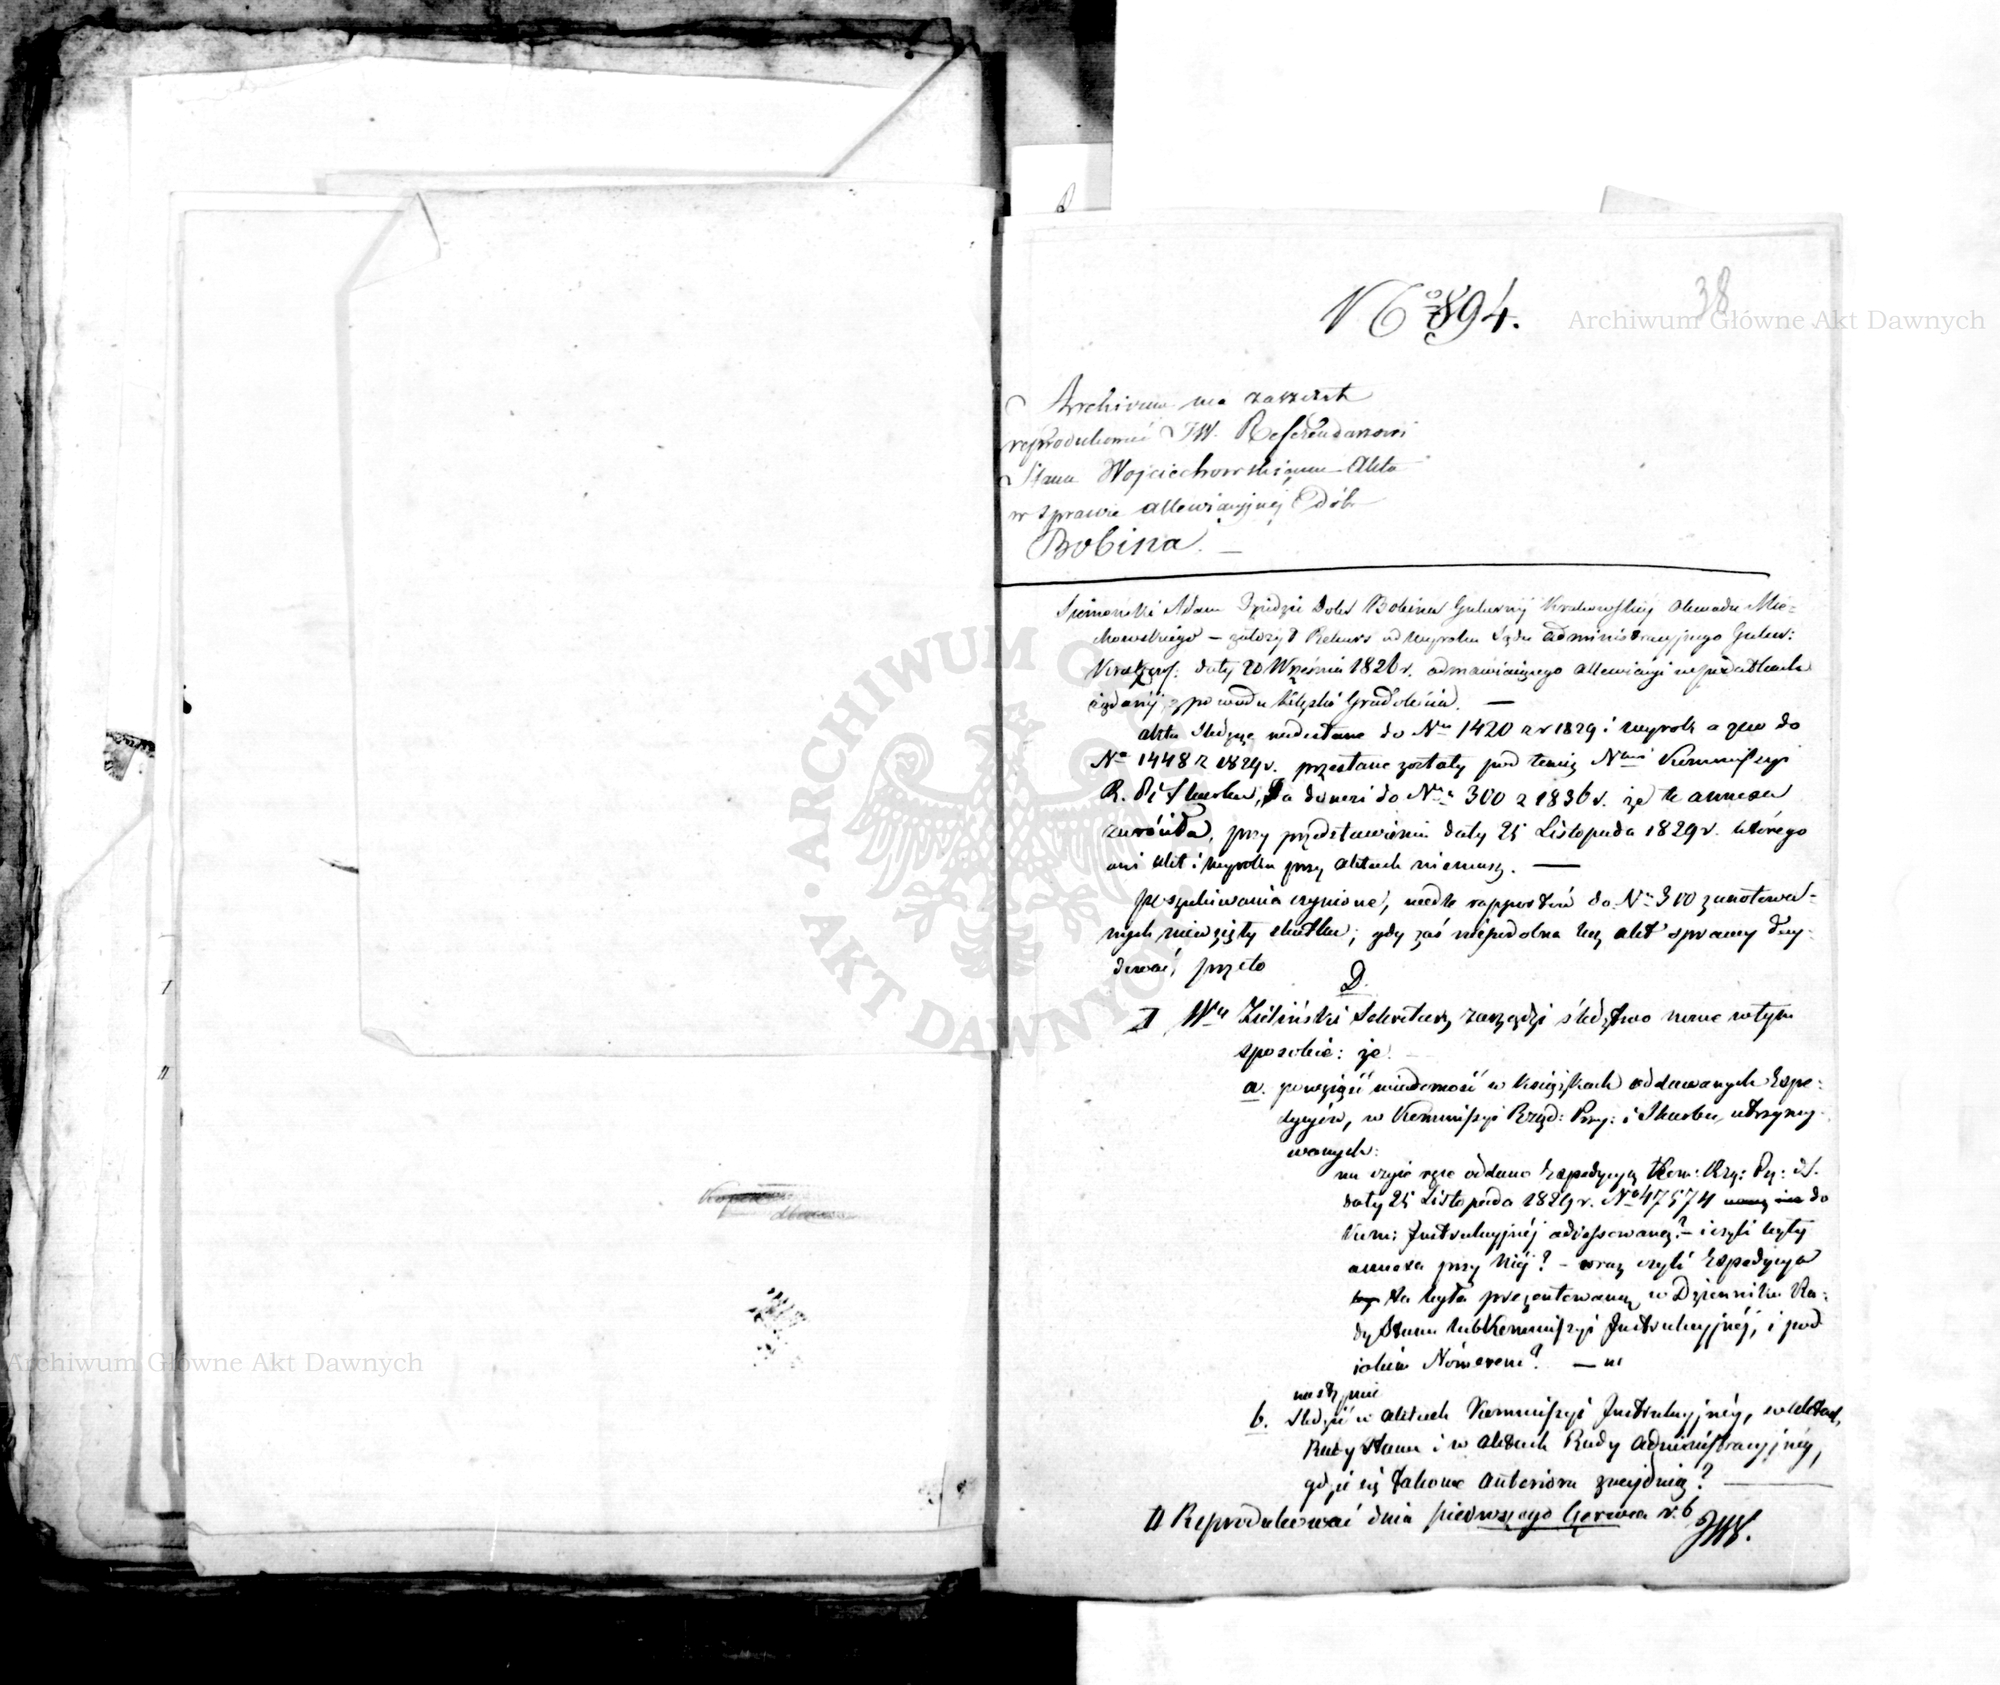 38
Nº 6894.
Archiwum Główne Akt Dawnych
Archiwum ma zaszczyt
reprodukować JW. Referendarzowi
Stanu Wojciechowskiemu Akta
w sprawie allewiacyjnej Dóbr
Bobina. —
Siemoński Adam Dziedzic Dóbr Bobina Gubernij Krakowskiej Obwodu Mie-
chowskiego — założył Rekurs od wyroku Sądu administracyjnego Guber:
Krakows: daty 20 Września 1826 r. odmawiającego allewiacyi w podatkach
żądanij z powodu klęski Gradobicia. —
akta śledcze nadesłane do Nru 1420 z r 1829 i wyrok a quo do
Nr 1448 z 1829 r. przesłane zostały pod temiż Nrami Kommissyi
R. P. i Skarbu, Ta donosi do Nru 300 z 1836 r. że te annexa
zwróciła, przy przedstawieniu daty 25 Listopada 1829 r. którego
ani akt i wyroku przy aktach niemasz. —
poszukiwania czynione, wedle rapportów do Nr 300 zanotowa-
nych niewzięły skutku; gdy zaś niepodobna bez akt sprawy
przeto
D.
I Wny Zieliński Sekretarz zarządzi śledztwo nowe w tym
sposobie: że
a. powziąść wiadomość w książkach oddawanych Expe:
dycyów, w Kommissyi Rząd: Przy: i Skarbu, utrzymy-
wanych:
na czyie ręce oddano Expedycyą Kom: Rzą: Py: i S.
daty 25 Listopada 1829 r. Nro 47574 do
Kom: Instrukcyjnéj adressowaną? — i czyli były
annexa przy Niéj? — oraz czyli Expedycya
ta była prezentowaną w Dzienniku Ra-
dy Stanu lub Kommissyi Instrukcyjnéj, i pod
jakim Nómerem? —
następnie
b. śledzić w aktach Kommissyi Instrukcyjnéj, w aktach
Rady Stanu i w aktach Rady Administracyjnéj,
gdzie się takowe anteriora znajdują? —
II Reprodukować dnia pierwszego Czerwca r. b
Archiwum Główne Akt Dawnych
I
II
ARCHIWUM GŁÓWNE AKT DAWNYCH